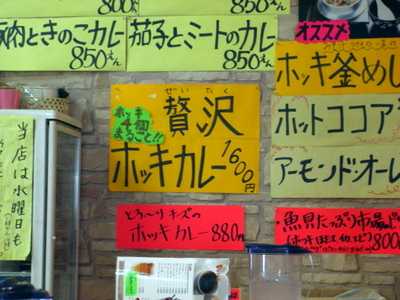 800えん
豚肉ときのこカレー
850えん
茄子とミートのカレー
850えん
オススメ
ホッキ釜めし
ホットココア
アーモンド・オーレ
ぜいたく
贅沢
ホッキ
4個
まるごと!!
ホッキカレー
1600円
とろ〜りチーズの
ホッキカレー 880円
魚貝たっぷり市場の
(ホッキ ほたて
800
当店は水曜日も